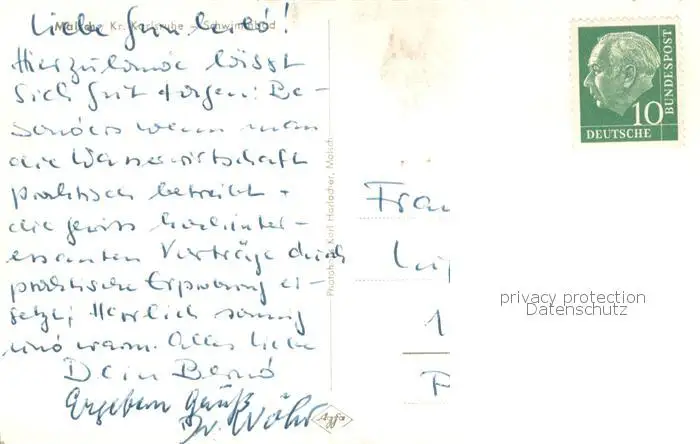 Malsch Kr. Karlsruhe – Schwimmbad
Liebe
Hierzulande lässt
sich gut tagen! Be-
sonders wenn man
die Wasserwirtschaft
praktisch betreibt +
die gewiss hochinter-
essanten Vorträge durch
praktische Erprobung er-
setzt; Herrlich sonnig
und warm. Alles Liebe
Dein Bernd
Ergebene Grüße
Dr. Wöhr
Photoh Karl Horlacher, Malsch
Agfa
10
DEUTSCHE
BUNDESPOST
Frau
1
privacy protection
Datenschutz